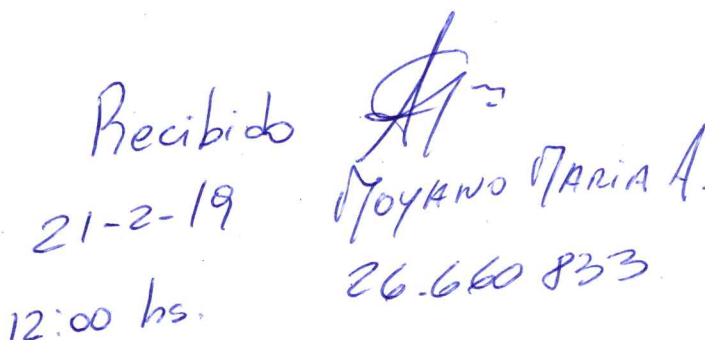 Recibido
21-2-19
12:00 hs.
Moyano Maria A.
26.660 833